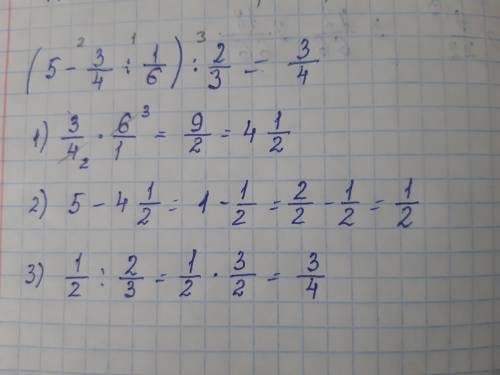 (5 - 3/4 : 1/6) : 2/3 = 3/4
1) 3/4 · 6/1 = 9/2 = 4 1/2
2) 5 - 4 1/2 = 1 - 1/2 = 2/2 - 1/2 = 1/2
3) 1/2 : 2/3 = 1/2 · 3/2 = 3/4